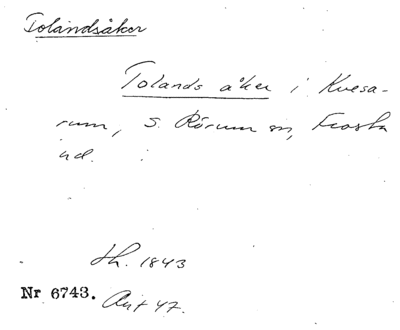 Tolandsåker
Tolands åker i Kvesa-
rum, S. Rörum sn, Frosta
hd.
th. 1843
Nr 6743. Ant 47.